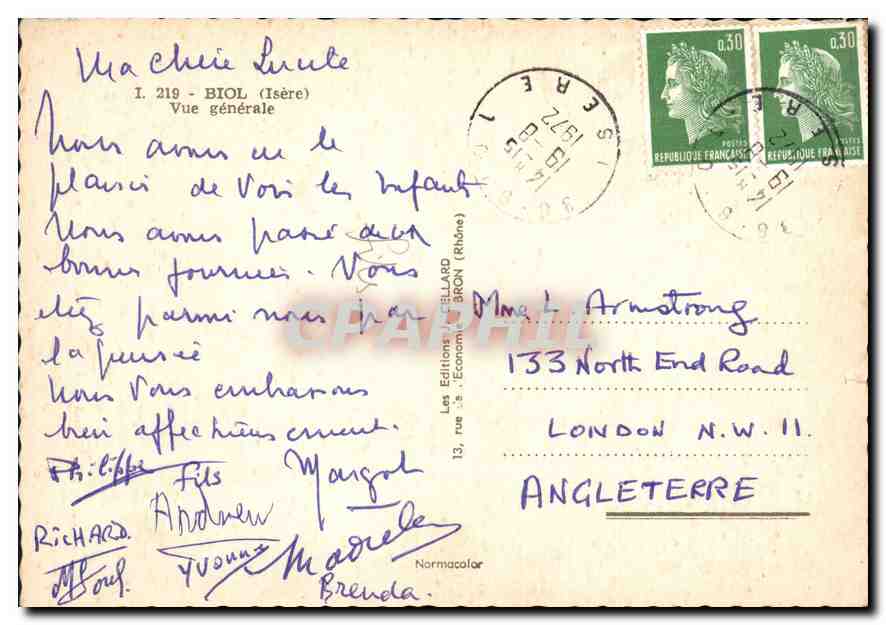 Ma Chère Lucile
I. 219 - BIOL (Isère)
Vue générale
Nous avons eu le
plaisir de voir les enfants
Nous avons passé de
bonnes journées. Vous
étiez parmi nous par
la pensée
Nous Vous embrassons
bien affectueusement.
Philippe Fils Margot
RICHARD. Andrew
Yvonne
Brenda.
Les Editions J. CELLARD
13, rue de l'Economie BRON (Rhône)
Normacolor
CPAPHIL
0,30
POSTES
REPUBLIQUE FRANÇAISE
0,30
POSTES
REPUBLIQUE FRANÇAISE
14 H 15
19 - 8
1972
ISERE
Mme L Armstrong
133 North End Road
LONDON N.W. 11.
ANGLETERRE